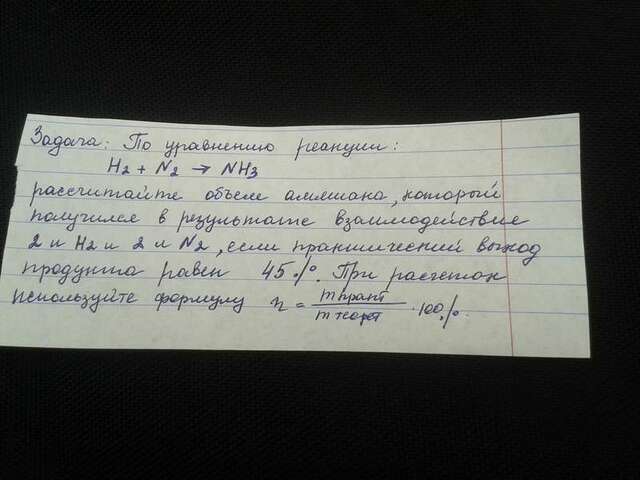 Задача: По уравнению реакции:
H2 + N2 → NH3
рассчитайте объем аммиака, который
получился в результате взаимодействие
2 л H2 и 2 л N2, если практический выход
продукта равен 45%. При расчетах
используйте формулу η = m практ / m теорет · 100%.